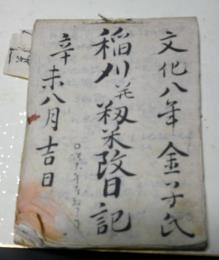 文化八年 金子氏
稲刈並籾米改日記
辛未八月吉日